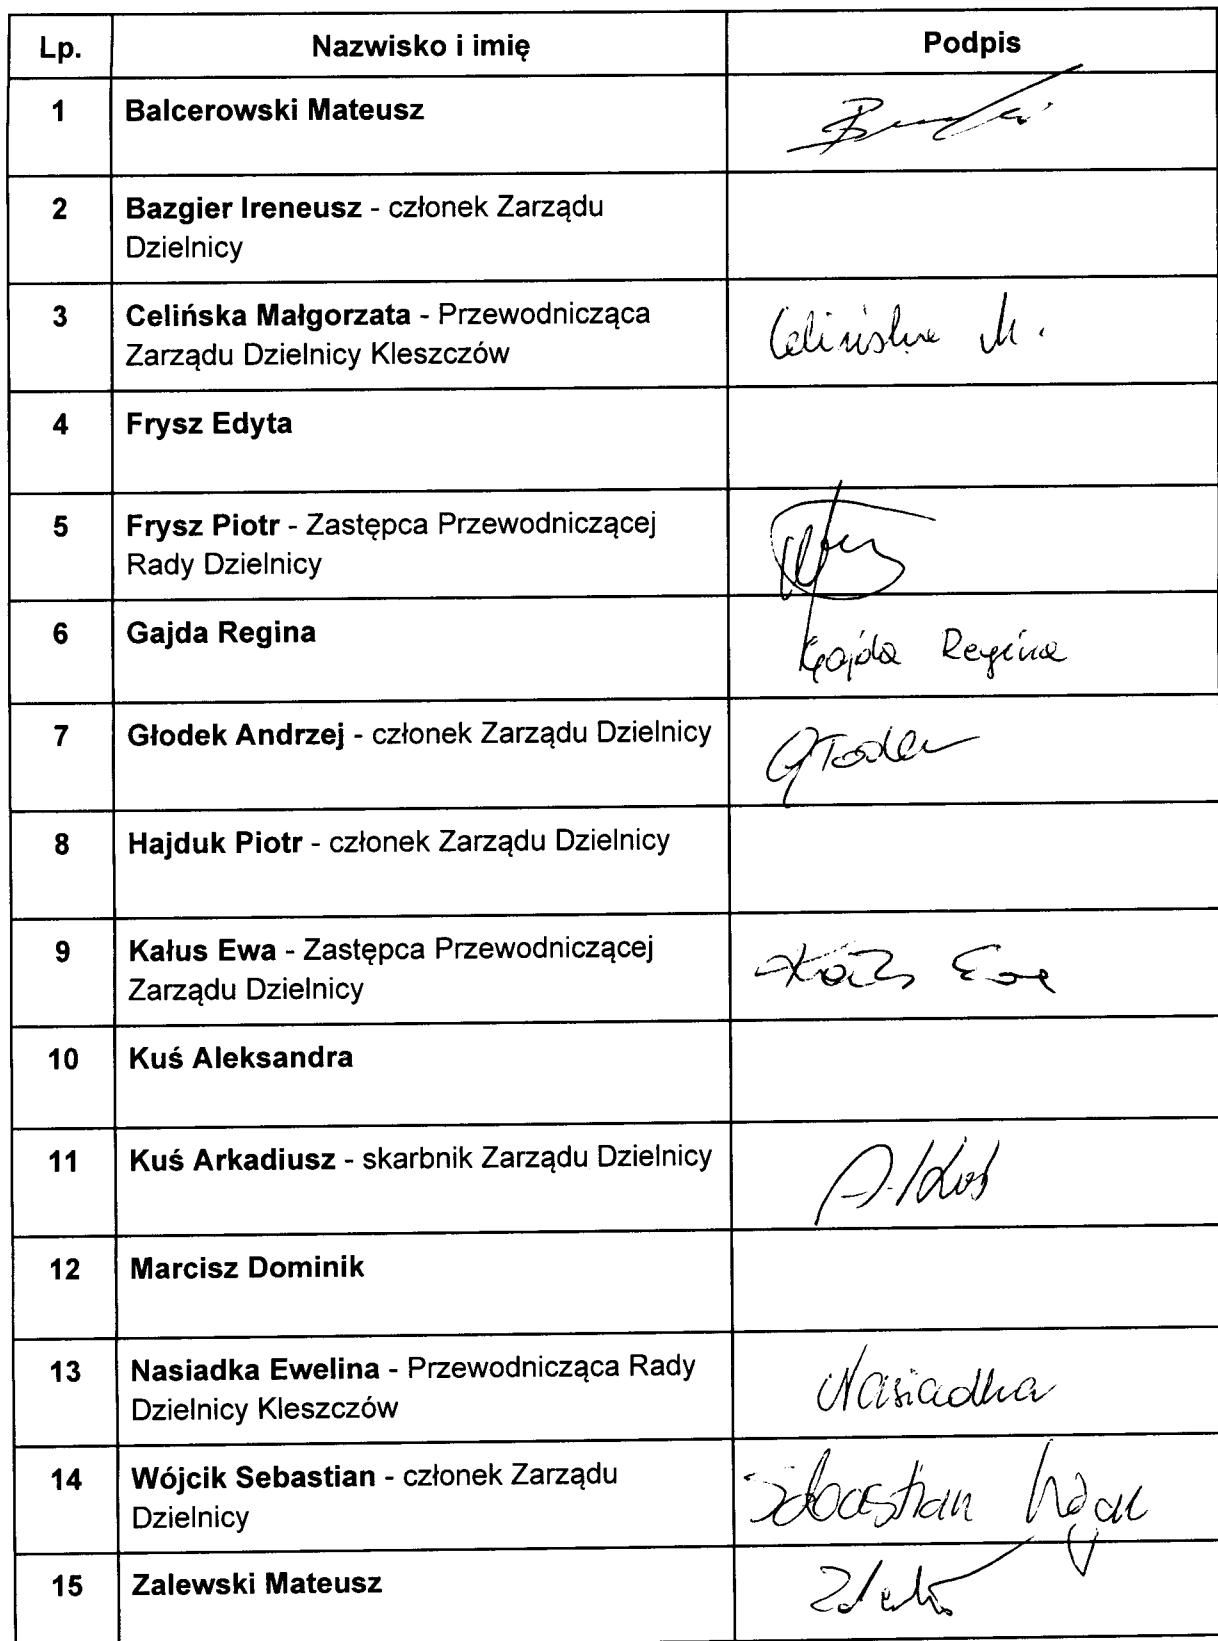 Lp. Nazwisko i imię Podpis
1 Balcerowski Mateusz
2 Bazgier Ireneusz - członek Zarządu
Dzielnicy
3 Celińska Małgorzata - Przewodnicząca
Zarządu Dzielnicy Kleszczów
Celińska M.
4 Frysz Edyta
5 Frysz Piotr - Zastępca Przewodniczącej
Rady Dzielnicy
6 Gajda Regina Gajda Regina
7 Głodek Andrzej - członek Zarządu Dzielnicy
8 Hajduk Piotr - członek Zarządu Dzielnicy
9 Kałus Ewa - Zastępca Przewodniczącej
Zarządu Dzielnicy
10 Kuś Aleksandra
11 Kuś Arkadiusz - skarbnik Zarządu Dzielnicy A. Kuś
12 Marcisz Dominik
13 Nasiadka Ewelina - Przewodnicząca Rady
Dzielnicy Kleszczów
Nasiadka
14 Wójcik Sebastian - członek Zarządu
Dzielnicy
Sebastian
15 Zalewski Mateusz